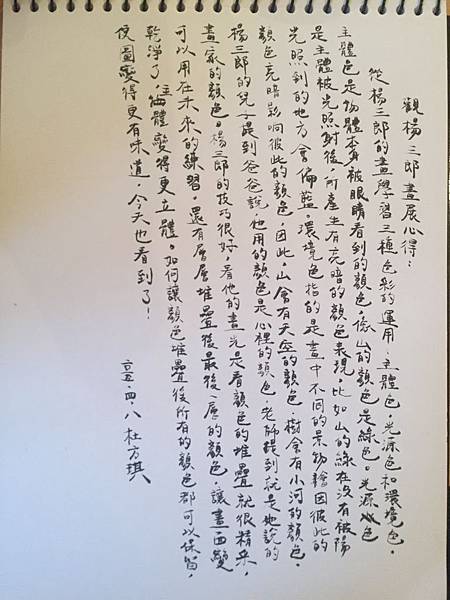 觀楊三郎畫展心得：
從楊三郎的畫學習三種色彩的運用：主體色，光源色和環境色，
主體色是物體本身被眼睛看到的顏色，像山的顏色是綠色。光源色
是主體被光照射後，所產生有亮暗的顏色表現，比如山的綠在沒有被陽
光照到的地方會偏藍，環境色指的是畫中不同的景物會因彼此的
顏色亮暗影响彼此的顏色，因此，山會有天空的顏色，樹會有小河的顏色，
楊三郎的兒子提到爸爸說，他用的顏色是心裡的顏色，老師提到就是他說的
畫家的顏色。楊三郎的技巧很好，看他的畫光是看顏色的堆疊就很精采，
可以用在未來的練習，還有層層堆疊後最後一層的顏色，讓畫面變
乾淨了，主體變得更立體。如何讓顏色堆疊後所有的顏色都可以保留，
使圖變得更有味道，今天也看到了！
4.8 杜方琪